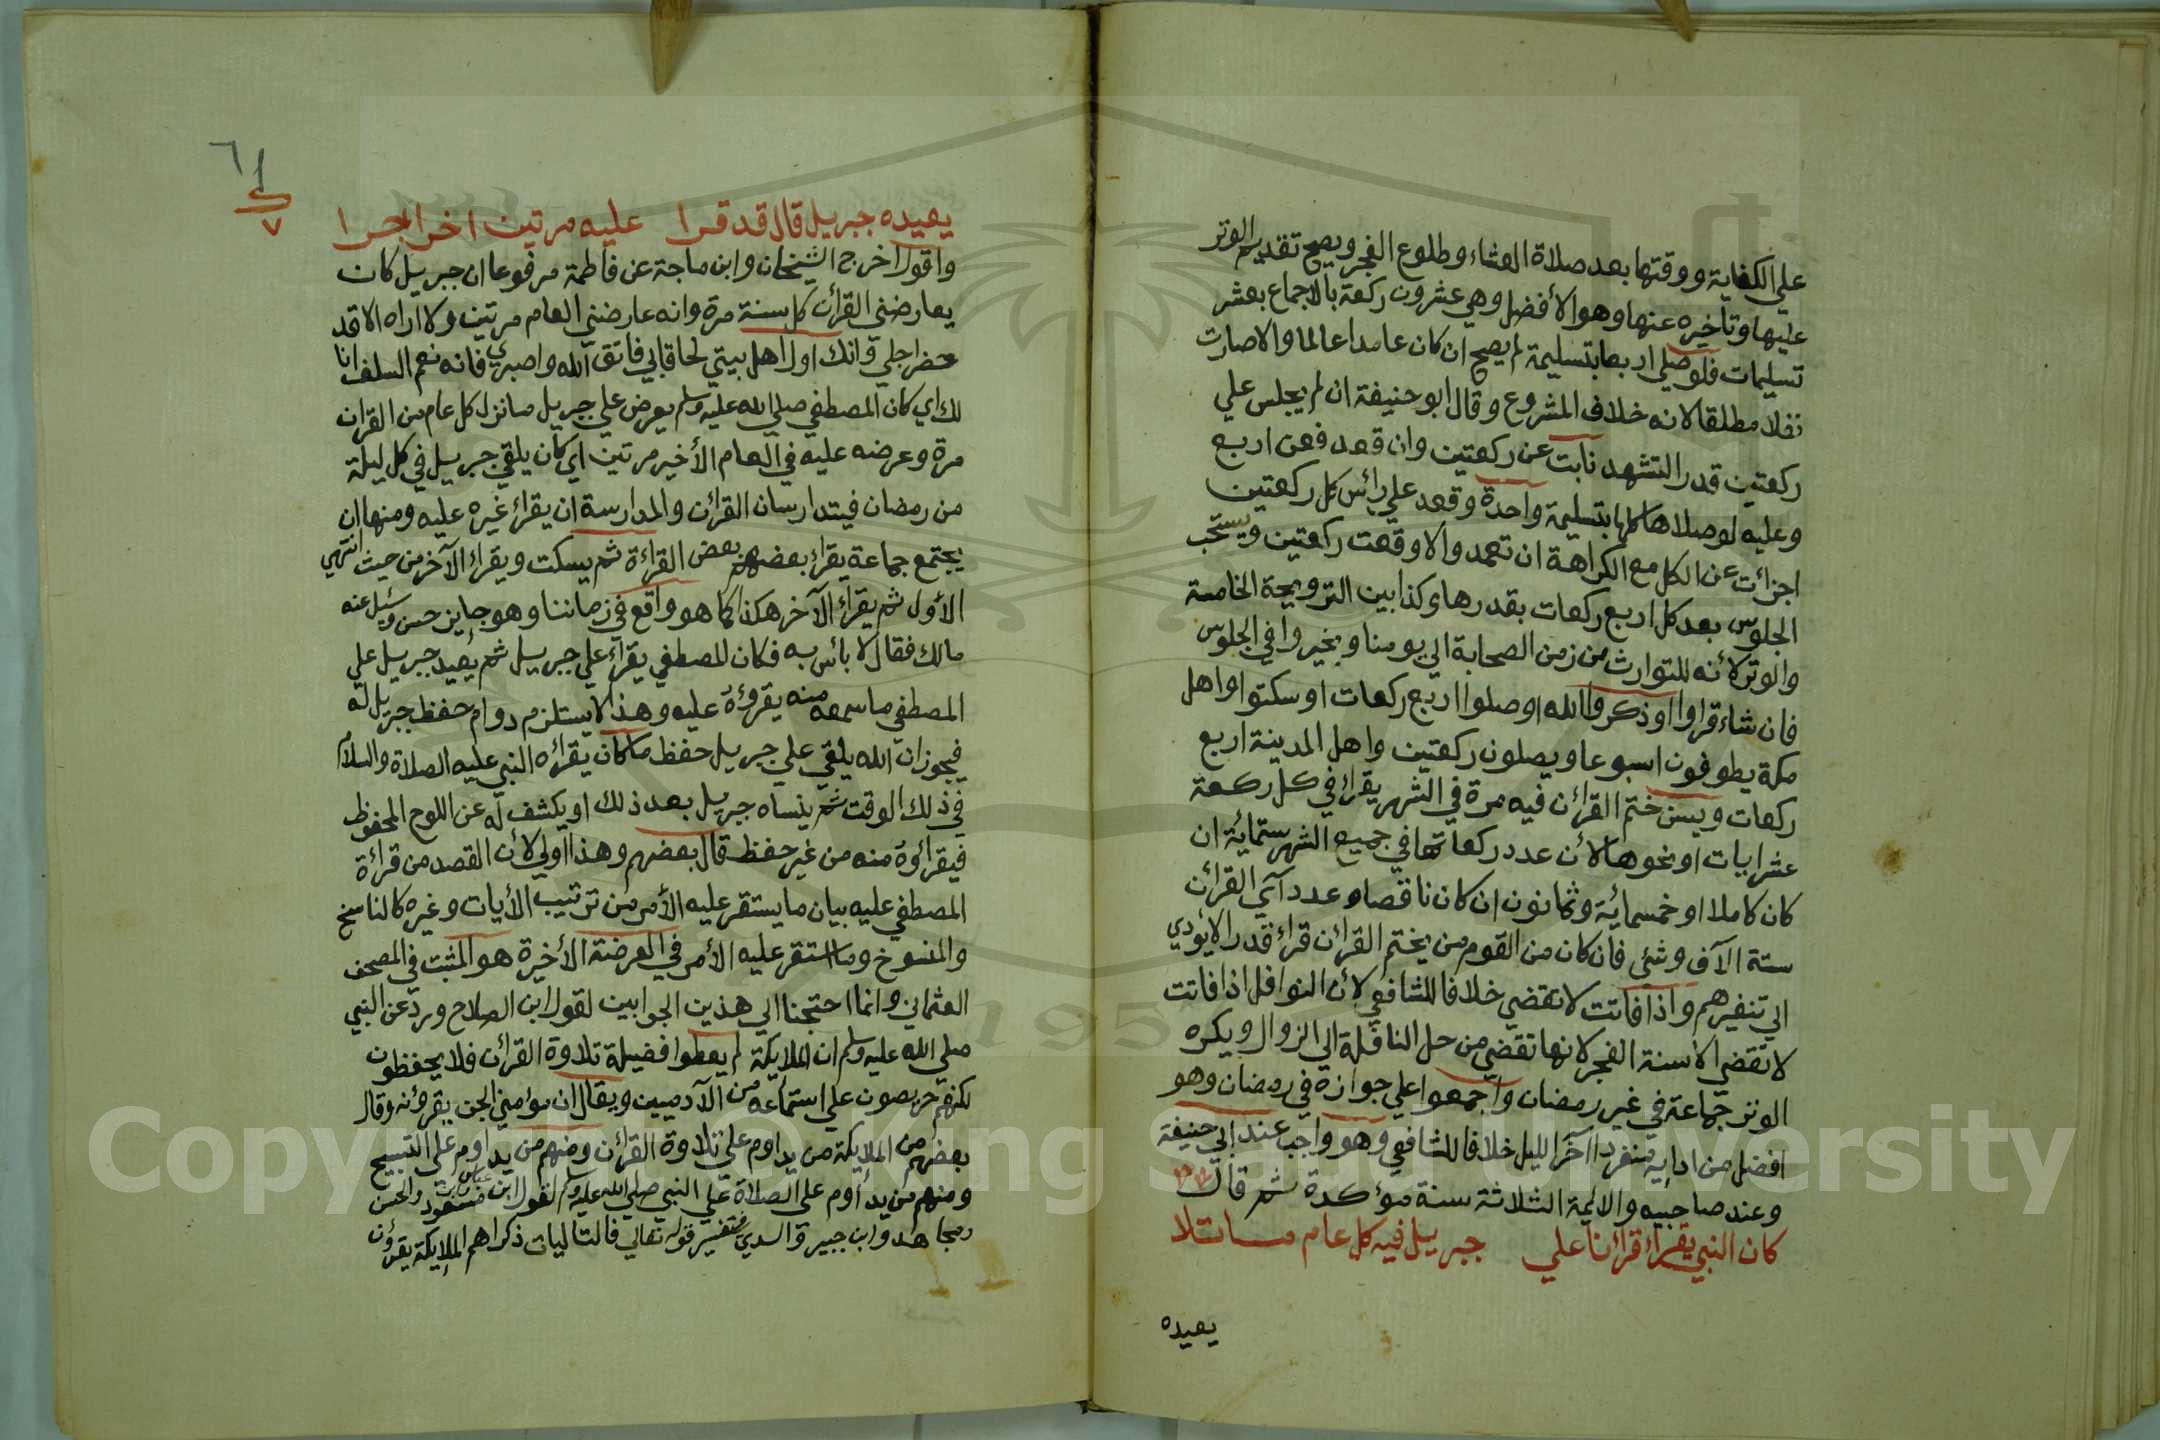 علي الكفاية ووقتها بعد صلاة العشاء وطلوع الفجر ويصح تقديم الوتر
عليها وتاخيره عنها وهو الأفضل وهي عشرون ركعة بالاجماع بعشر
تسليمات فلو صلي اربعا بتسليمة لم يصح ان كان عامدا عالما والا صارت
نفلا مطلقا لانه خلاف المشروع وقال ابو حنيفة ان لم يجلس علي
ركعتين قدر التشهد نابت عن ركعتين وان قعد فعن اربع
وعليه لو صلاها كلها بتسليمة واحدة وقعد علي رائس كل ركعتين
اجزائت عن الكل مع الكراهة ان تعمد والا وقعت ركعتين ويستحب
الجلوس بعد كل اربع ركعات بقدرها وكذا بين الترويحة الخامسة
والوتر لأنه المتوارث من زمن الصحابة الي يومنا ويخيروا في الجلوس
فان شاء قراوا او ذكروا الله او صلوا اربع ركعات او سكتوا واهل
مكة يطوفون اسبوعا ويصلون ركعتين واهل المدينة اربع
ركعات ويسن ختم القرائن فيه مرة في الشهر يقراء في كل ركعة
عشر ايات او نحوها لأن عدد ركعاتها في جميع الشهر ستمائة ان
كان كاملا او خمسمائة وثمانون ان كان ناقصا وعدد آي القرائن
ستة الآف وشئي فان كان من القوم من يختم القرائن قراء قدر الا يؤدي
الي تنفيرهم واذا فاتت لا تقضي خلافا للشافعي لأن النوافل اذا فاتت
لا تقضي الا سنة الفجر لانها تقضي من حل النافلة الي الزوال ويكره
الوتر جماعة في غير رمضان واجمعوا علي جوازه في رمضان وهو
افضل من ادايه منفردا آخر الليل خلافا للشافعي وهو واجب عند ابي حنيفة
وعند صاحبيه والايمة الثلاثة سنة مؤكدة ثم قال
كان النبي يقراء قرائنا علي جبريل فيه كل عام ما تلا
يعيده
٦١
٧
يعيده جبريل قال قد قرا عليه مرتين اخرا
واقول اخرج الشيخان وابن ماجة عن فاطمة مرفوعا ان جبريل كان
يعارضني القرائن كل سنة مرة وانه عارضني العام مرتين ولا اراه الا قد
حضر اجلي وانك اول اهل بيتي لحاقا بي فاتق الله واصبري فانه نعم السلف انا
لك اي كان المصطفي صلي الله عليه وسلم يعرض علي جبريل ما نزل كل عام من القران
مرة وعرضه عليه في العام الأخير مرتين اي كان يلقي جبريل في كل ليلة
من رمضان فيتدارسان القرائن والمدارسة ان يقراء غيره عليه ومنها ان
يجتمع جماعة يقراء بعضهم بعض القراءة ثم يسكت ويقراء الآخر من حيث انتهي
الأول ثم يقراء الآخر هكذا كما هو واقع في زماننا وهو جايز حسن وسئيل عنه
مالك فقال لا بائس به فكان المصطفي يقراء علي جبريل ثم يعيد جبريل علي
المصطفي ما سمعه منه يقروءة عليه وهذا لا يستلزم دوام حفظ جبريل له
فيجوز ان الله يلقي علي جبريل حفظ ما كان يقرائه النبي عليه الصلاة والسلام
في ذلك الوقت ثم ينساه جبريل بعد ذلك او يكشف له عن اللوح المحفوظ
فيقراؤه منه من غير حفظ قال بعضهم وهذا اولي لأن القصد من قرائة
المصطفي عليه بيان ما يستقر عليه الأمر من ترتيب الأيات وغيره كالناسخ
والمنسوخ وما استقر عليه الأمر في العرضة الأخيرة هو المثبت في المصحف
العثماني وانما احتجنا الي هذين الجوابين لقول ابن الصلاح ورد عن النبي
صلي الله عليه وسلم ان الملايكة لم يعطوا فضيلة تلاوة القرائن فلا يحفظون
لكنهم حريصون علي استماعه من الآدميين ويقال ان مؤمني الجن يقرؤنه وقال
بعضهم من الملايكة من يداوم علي تلاوة القرائن ومنهم من يداوم علي التسبيح
ومنهم من يداوم علي الصلاة علي النبي صلي الله عليه وسلم لقول ابن عباس وابن مسعود والحسن
ومجاهد وابن جبير والسدي في تفسير قوله تعالي فالتاليات ذكرا هم الملايكة يقرؤن
Copyright © King Saud University
195